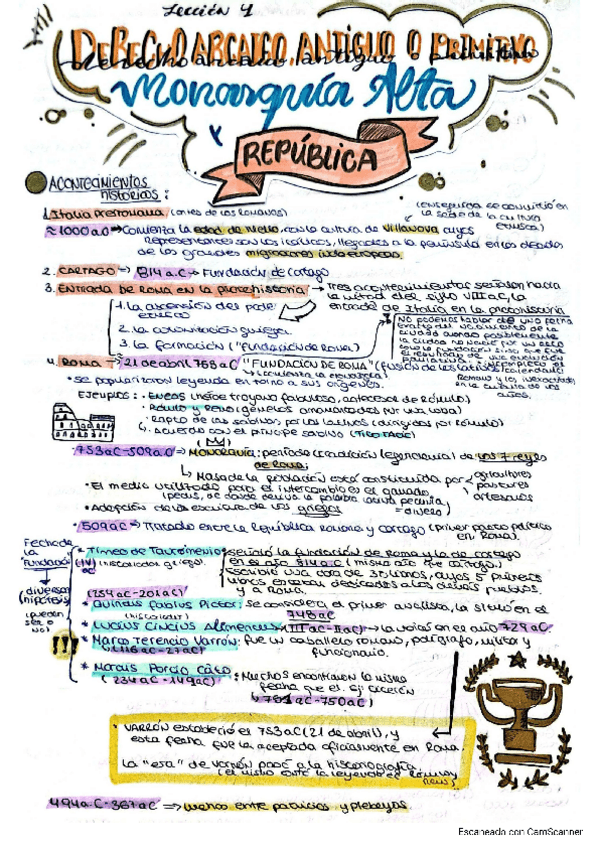 Lección 4
DERECHO ARCAICO, ANTIGUO O PRIMITIVO
Monarquía Alta
y
REPÚBLICA
ACONTECIMIENTOS
históricos:
1. Italia Prerromana (antes de los romanos)
≈1000 a.C → Comienza la edad de hierro, con la cultura de Villanova cuyos
(enseguida se convirtió en
la sede de la cultura
etrusca)
representantes son los itálicos, llegados a la península en las oleadas
de las grandes migraciones indoeuropeas.
2. CARTAGO → 814 a.C → Fundación de Cartago
3. ENTRADA DE ROMA EN LA PROTOHISTORIA → Tres acontecimientos señalan hacia
la mitad del siglo VIII a.C, la
entrada de Italia en la protohistoria
1. la ascensión del poder
etrusco
2. la colonización griega.
3. la formación ("fundación de Roma)
No podemos hablar de una fecha
exacta del nacimiento de la
ciudad
4. ROMA → 21 de abril, 753 a.C "FUNDACIÓN DE ROMA"
• se popularizaron leyendas en torno a sus orígenes.
Ejemplos: · Eneas (héroe troyano fabuloso, antecesor de Rómulo)
· Rómulo y Remo (gemelos amamantados por una loba)
· Rapto de las sabinas por los latinos (dirigidos por Rómulo)
· Acuerdo con el príncipe sabino (Tito Tacio)
· 753 a.C - 509 a.C → MONARQUÍA: período (condición legendaria) de los 7 reyes
de Roma.
↳ Masa de la población está constituida por agricultores
pastores
artesanos
• El medio utilizado para el intercambio es el ganado
(pecus, de donde deriva la palabra latina pecunia,
= dinero)
• Adopción de la escritura de los griegos
· 509 a.C → Tratado entre la República romana y Cartago (primer pacto político
en Roma).
Fecha de
la
"fundación"
↓
diversas
hipótesis
(pueden
ser o
no)
!!!
* Timeo de Tauromenio: señaló la fundación de Roma y la de Cartago
(IV) (historiador griego). en el año 814 a.C (mismo año que Cartago)
escribió una obra de 38 libros, cuyos 5 primeros
libros estaban dedicados a los demás pueblos.
y a Roma.
(254 a.C - 201 a.C)
* Quintus Fabius Pictor: se considera el primer analista, la situó en el
(historiador) 748 a.C
* Lucius Cincius Alimentus (III a.C - II a.C) → la sitúa en el año 729 a.C
* Marco Terencio Varrón: fue un caballero romano, polígrafo, militar y
(116 a.C - 27 a.C) funcionario.
* Marcus Porcio Catón
(234 a.C - 149 a.C) : Muchos encontraron la misma
fecha que él. ej: Cicerón
↳ 751 a.C - 750 a.C)
· VARRÓN estableció el 753 a.C (21 de abril), y
esta fecha fue la aceptada oficialmente en Roma.
La "era" de Varrón pasó a la historiografía.
494 a.C - 367 a.C ⇒ Lucha entre patricios y plebeyos.
Escaneado con CamScanner